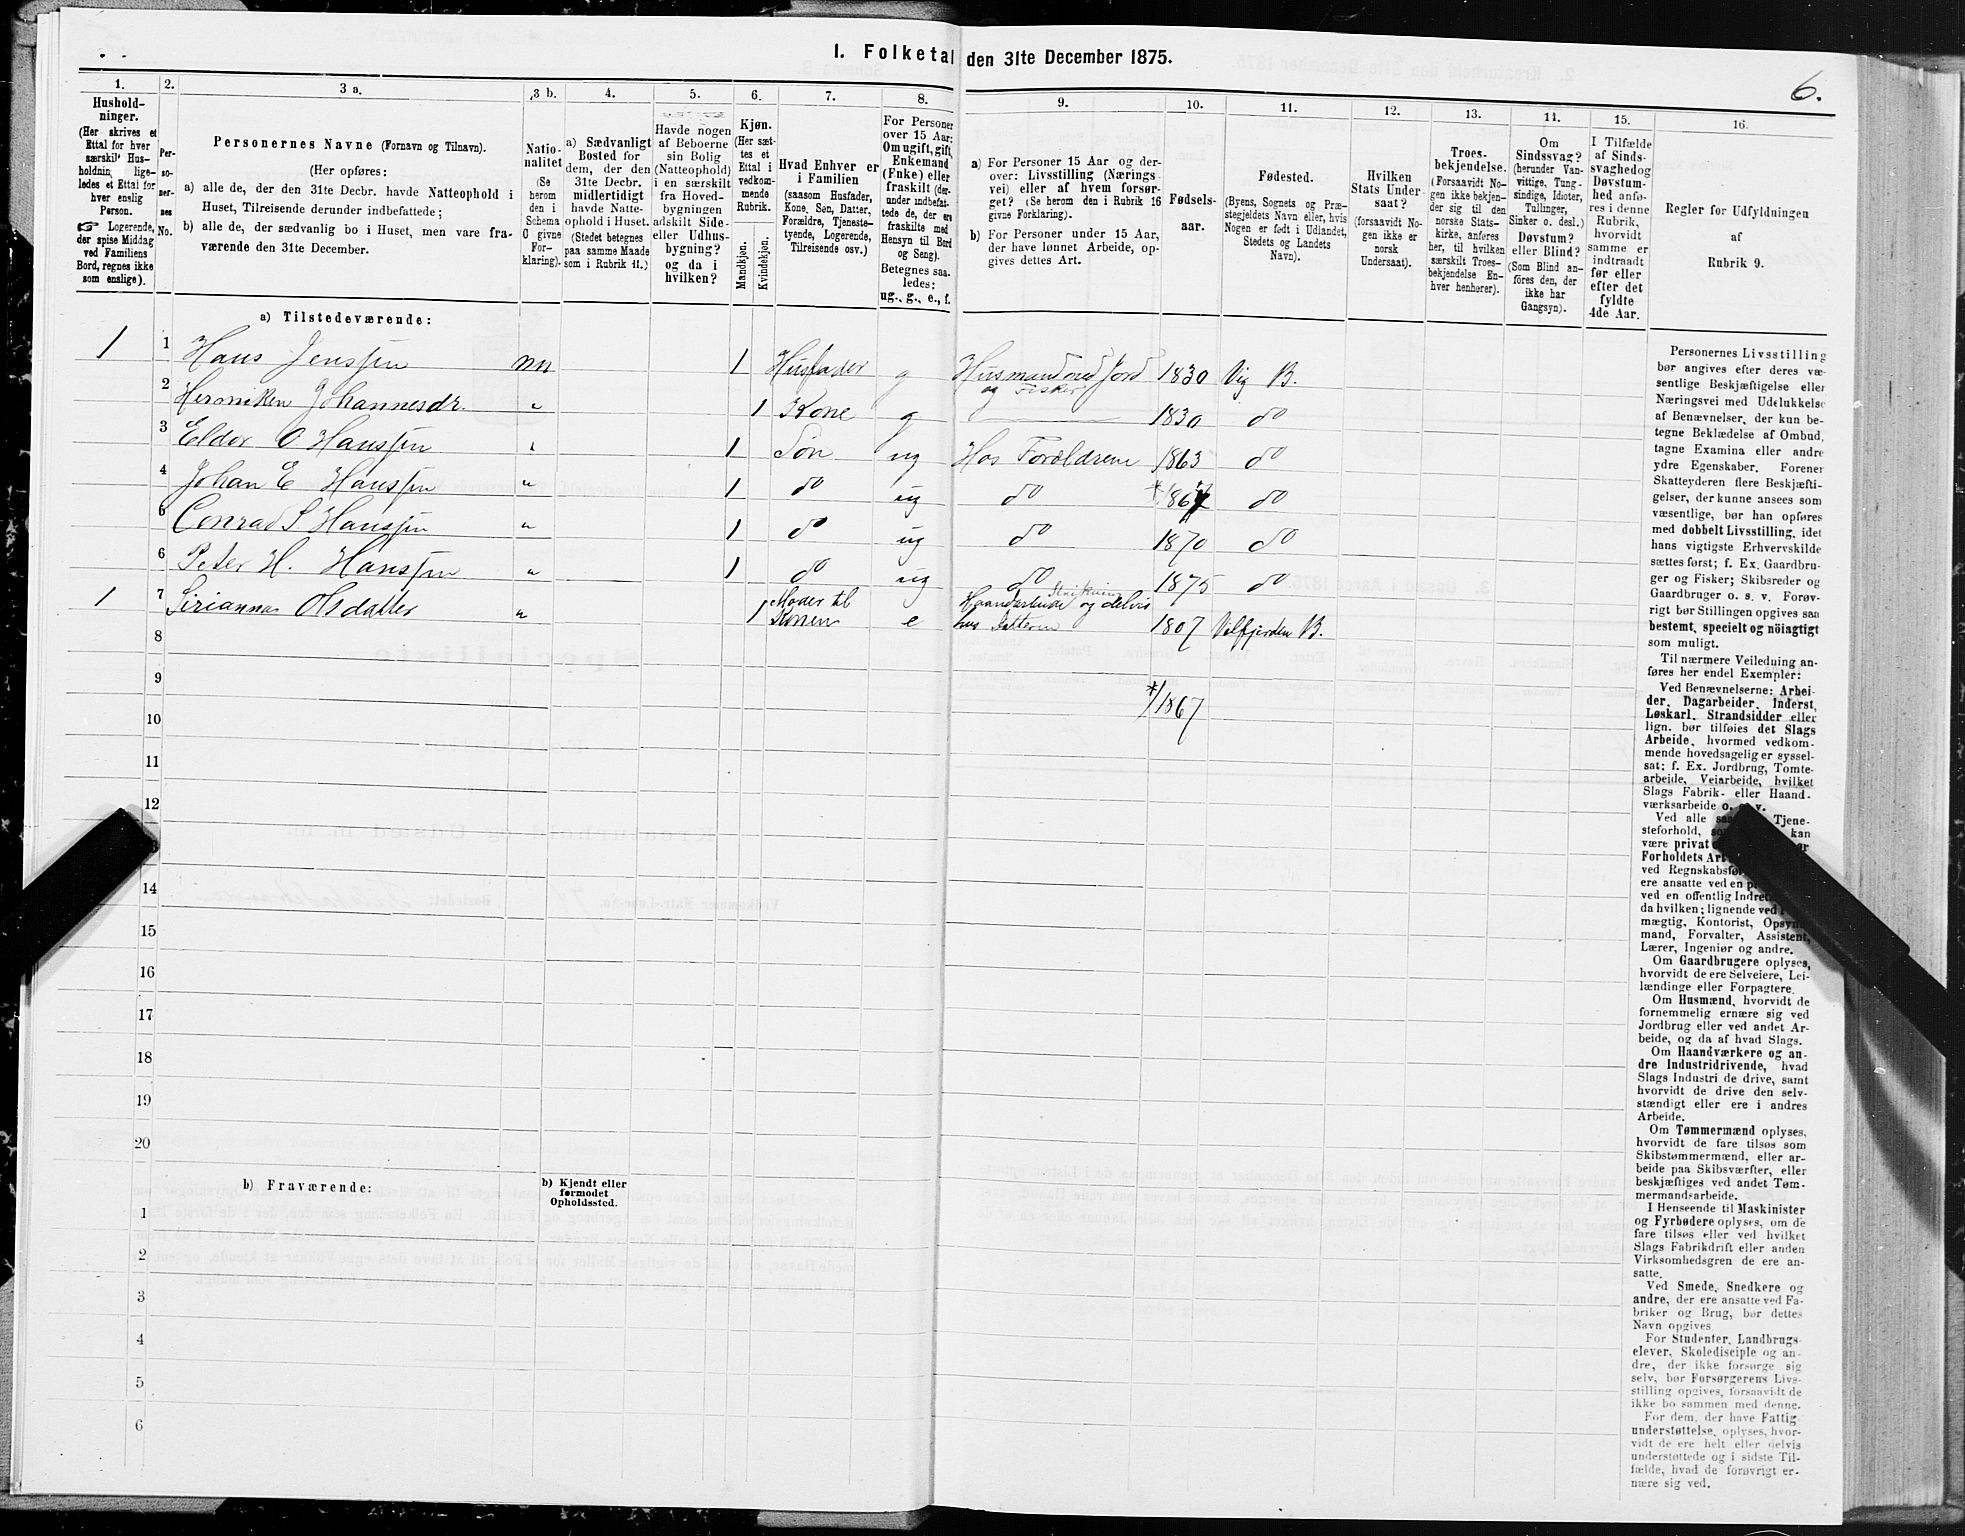 I. Folketal den 31te December 1875.
6.
1.
Hushold-
ninger.
(Her skrives et
Ettal for hver
særskilt Hus-
holdning lige-
ledes et Ettal for
hver enslig
Person.
☞ Logerende,
der spise Middag
ved Familiens
Bord, regnes ikke
som enslige).
2.
Per-
so-
ner-
nes
No.
3 a.
Personernes Navne (Fornavn og Tilnavn).
(Her opføres:
a) alle de, der den 31te Decbr. havde Natteophold i
Huset, Tilreisende derunder indbefattede;
b) alle de, der sædvanlig bo i Huset, men vare fra-
værende den 31te December.
3 b.
Natio-
nalitet
(Se
herom
den i
Schema
O givne
For-
klaring).
4.
a) Sædvanligt
Bosted for
dem, der den
31te Decbr.
midlertidigt
havde Natte-
ophold i Huset.
(Stedet betegnes
paa samme Maade
som i Rubrik 11.)
5.
Havde nogen
af Beboerne
sin Bolig
(Natteophold)
i en særskilt
fra Hoved-
bygningen
adskilt Side-
eller Udhus-
bygning?
og da i
hvilken?
6.
Kjøn.
(Her sæt-
tes et
Ettal i
vedkom-
mende
Rubrik.
Mandkjøn.
Kvindekjøn.
7.
Hvad Enhver er
i Familien
(saasom Husfader,
Kone, Søn, Datter,
Forældre, Tjeneste-
tyende, Logerende,
Tilreisende osv.)
8.
For Personer
over 15 Aar:
Om ugift, gift,
Enkemand
(Enke) eller
fraskilt (der-
under indbefat-
tede de, der ere
fraskilte med
Hensyn til Bord
og Seng).
Betegnes saa-
ledes:
ug., g., e., f.
9.
a) For Personer 15 Aar og der-
over: Livsstilling (Nærings-
vei) eller af hvem forsør-
get? (Se herom den i Rubrik 16
givne Forklaring).
b) For Personer under 15 Aar,
der have lønnet Arbeide, op-
gives dettes Art.
10.
Fødsels-
aar.
11.
Fødested.
(Byens, Sognets og Præ-
stegjeldets Navn eller, hvis
Nogen er født i Udlandet,
Stedets og Landets
Navn).
12.
Hvilken
Stats Under-
saat?
(forsaavidt No-
gen ikke er
norsk
Undersaat).
13.
Troes-
bekjendelse.
(Forsaavidt No-
gen ikke bekjen-
der sig til den
norske Stats-
kirke, anføres
her, til hvilken
særskilt Troes-
bekjendelse En-
hver henhører).
14.
Om
Sindssvag?
(herunder Van-
vittige, Tung-
sindige, Idioter,
Tullinger,
Sinker o. desl.)
Døvstum?
eller Blind?
(Som Blind an-
føres den, der
ikke har
Gangsyn).
15.
I Tilfælde
af Sinds-
svaghed og
Døvstum-
hed anfø-
res i denne
Rubrik,
hvorvidt
samme er
indtraadt
før eller
efter det
fyldte
4de Aar.
16.
Regler for Udfyldningen
af
Rubrik 9.
a) Tilstedeværende:
1 1 Hans Jenssen nn 1 Husfader g Husmand med Jord og Fisker 1830 Vig B.
2 Herniken Johannesdr. „ 1 Kone g 1830 do
3 Eldor O Hanssen „ 1 Søn ug Hos Forældrene 1863 do
4 Johan E Hanssen „ 1 do ug do */1867 do
5 Conrad S. Hanssen „ 1 do ug do 1870 do
6 Peter H. Hanssen „ 1 do ug do 1875 do
1 7 Siriannas Olsdatter „ 1 Moder til Konen e Haandarbeide og delvis hos Datteren 1807 Velfjorden B.
8
9
*/1867
10
11
12
14
15
16
17
18
19
20
b) Fraværende:
b) Kjendt eller
formodet
Opholdssted.
1
2
3
4
5
6
Personernes Livsstilling
bør angives efter deres væ-
sentlige Beskjæftigelse eller
Næringsvei med Udelukkelse
af Benævnelser, der kun be-
tegne Beklædelse af Ombud,
tagne Examina eller andre
ydre Egenskaber. Forener
Skatteyderen flere Beskjæfti-
gelser, der kunne ansees som
væsentlige, bør han opføres
med dobbelt Livsstilling, idet
hans vigtigste Erhvervskilde
sættes først; f. Ex. Gaardbru-
ger og Fisker; Skibsreder og
Gaardbruger o. s. v. Forøv-
rigt bør Stillingen opgives saa
bestemt, specielt og nöiagtigt
som muligt.
Til nærmere Veiledning an-
føres her endel Exempler:
Ved Benævnelserne: Arbei-
der, Dagarbeider, Inderst,
Løskarl, Strandsidder eller
lign. bør tilføies det Slags
Arbeide, hvormed vedkom-
mende hovedsagelig er syssel-
sat; f. Ex. Jordbrug, Tomte-
arbeide, Veiarbeide, hvilket
Slags Fabrik- eller Haand-
værksarbeide o. s. v.
Ved alle Tjene-
steforhold, kan
være privat
Forholdets Art
ved Regnskabsfør
ere ansatte ved en
ved en offentlig Indret
da hvilken; lignende ved
mægtig, Kontorist, Opsyns-
mand, Forvalter, Assistent,
Lærer, Ingeniør og andre.
Om Gaardbrugere oplyses,
hvorvidt de ere Selveiere, Lei-
lændinge eller Forpagtere.
Om Husmænd, hvorvidt de
fornemmelig ernære sig ved
Jordbrug eller ved andet Ar-
beide, og da af hvad Slags.
Om Haandværkere og an-
dre Industridrivende, hvad
Slags Industri de drive, samt
hvorvidt de drive den selv-
stændigt eller ere i andres
Arbeide.
Om Tømmermænd oplyses,
hvorvidt de fare tilsøs som
Skibstømmermænd, eller ar-
beide paa Skibsværfter, eller
beskjæftiges ved andet Tøm-
mermandsarbeide.
I Henseende til Maskinister
og Fyrbødere oplyses, om de
fare tilsøs eller ved hvilket
Slags Fabrikdrift eller anden
Virksomhedsgren de ere an-
satte.
Ved Smede, Snedkere og
andre, der ere ansatte ved Fa-
briker og Brug, bør dettes
Navn opgives
For Studenter, Landbrugs-
elever, Skoledisciple og an-
dre, der ikke forsørge sig
selv, bør Forsørgerens Livs-
stilling opgives, forsaavidt de
ikke bo sammen med denne.
For dem, der have Fattig-
understøttelse, oplyses, hvor-
vidt de ere helt eller delvis
understøttede og i sidste Til-
fælde, hvad de forøvrigt er-
nære sig ved.